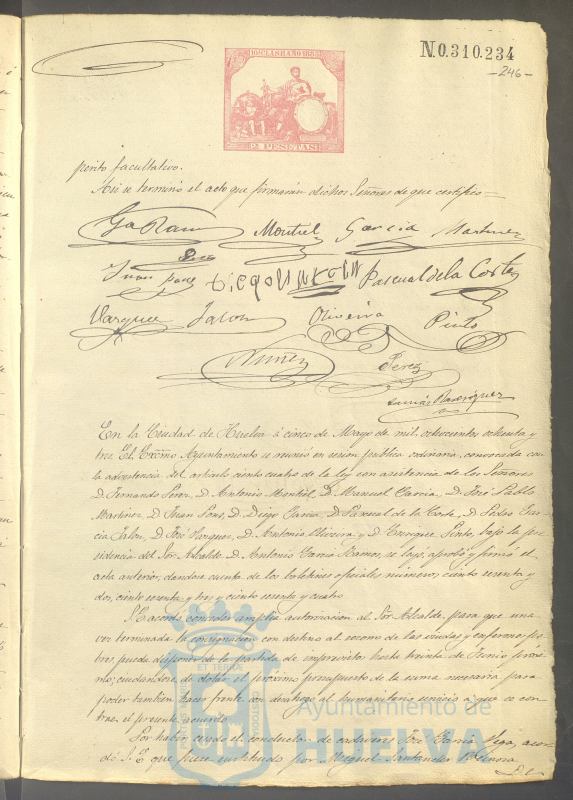 N.0.310.234
-246-
10ª CLASE AÑO 1883
2 PESETAS
perito facultativo.
Así se terminó el acto que firmarán dichos Señores de que certifico
Montiel García Martinez
Juan Pons Pascual de la Corte
Vazquez Jalon Oliveira Pinto
Nuñez Perez
Rodriguez
En la Ciudad de Huelva á cinco de Mayo de mil ochocientos ochenta y
tres El Excmo Ayuntamiento se reunió en sesion publica ordinaria, convocada con
la advertencia del artículo ciento cuatro de la ley con asistencia de los Señores
D. Fernando Perez, D. Antonio Montiél, D. Manuel Garcia, D. José Pablo
Martinez, D. Juan Pons, D. Diego Garcia, D. Pascual de la Corte, D. Pedro Gar-
cia Jalon, D. José Vazquez, D. Antonio Oliveira y D. Enrique Pinto, bajo la pre-
sidencia del Sor Alcalde D. Antonio Garcia Ramos, se leyó, aprobó y firmó el
acta anterior, dandose cuenta de los boletines oficiales número, ciento sesenta y
dos, ciento sesenta y tres y ciento sesenta y cuatro.
Se acordó conceder amplia autorizacion al Sor Alcalde, para que una
vez terminada la consignacion con destino al socorro de las viudas y enfermos po-
bres, pueda disponer de la partida de imprevistos hasta treinta de Junio proxi-
mo; cuidandose de dotar el proximo presupuesto de la suma necesaria para
poder tambien hacer frente con desahogo al humanitario servicio á que se con-
trae el presente acuerdo.
Por haber cesado el conductor de cadaveres José Garcia Vega, acor-
dó S. E. que fuese sustituido por Miguel Santander
Ayuntamiento de
HUELVA